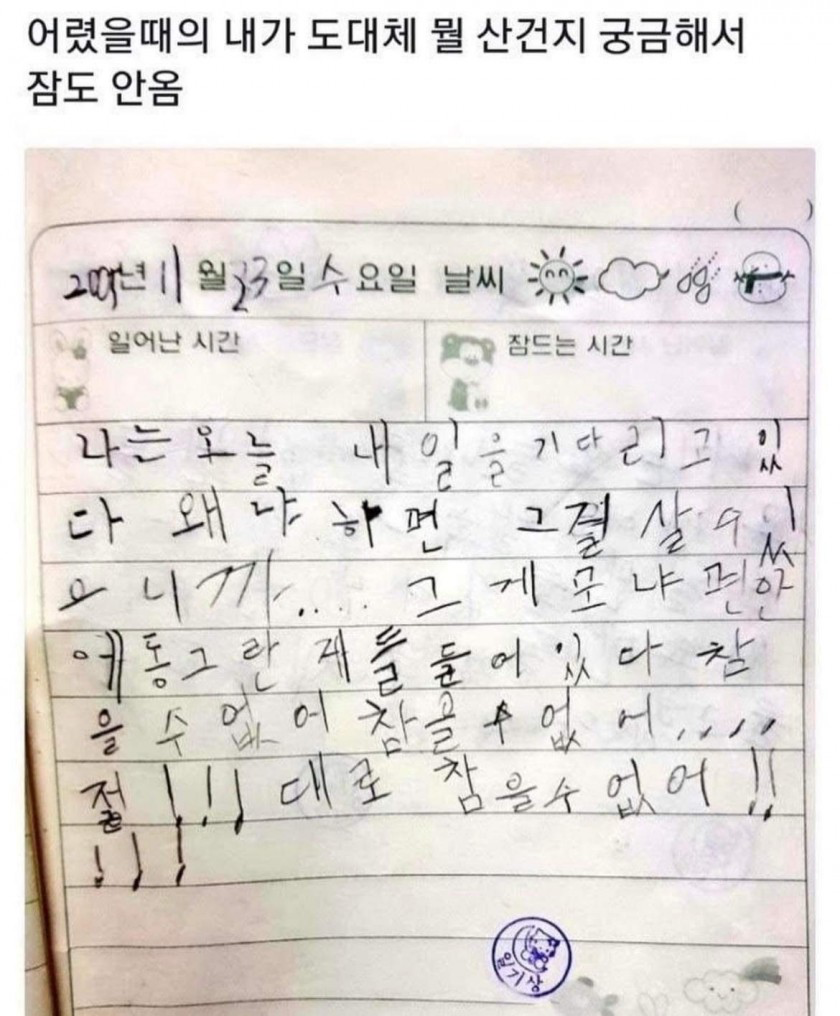 어렸을때의 내가 도대체 뭘 산건지 궁금해서
잠도 안옴
( )
년 11월 23일 수요일 날씨
일어난 시간 잠드는 시간
나는 오늘 내일을 기다리고 있
다 왜냐하면 그걸 살 수 있
으니까..... 그게 모냐면 안
에 동그란 게 들어있다 참
을 수 없어 참을 수 없어.....
절!!! 대로 참을수 없어!!
!!!
일기상